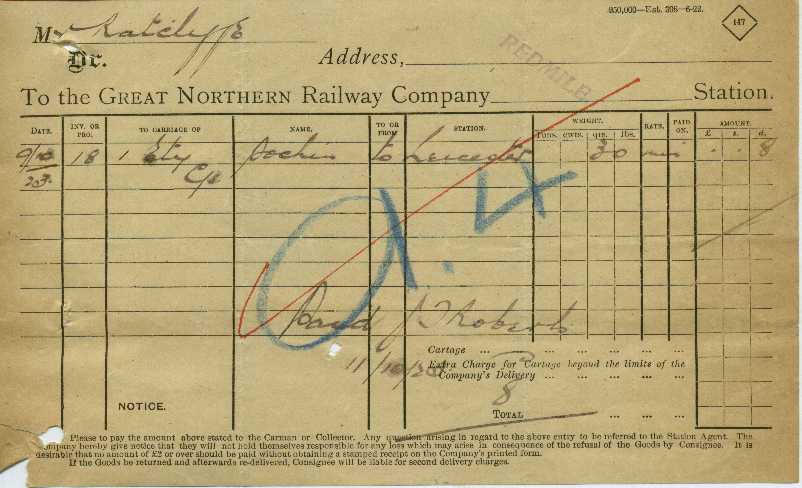 850,000—Est. 308—6-22.
147
Mr Ratcliffe
REDMILE
Dr. Address,
To the GREAT NORTHERN Railway Company Station.
DATE. INV. OR PRO. TO CARRIAGE OF NAME. TO OR FROM STATION. WEIGHT. RATE. PAID ON. AMOUNT.
Tons. cwts. qrs. lbs. £ s. d.
9/10 18 1 Ety to Leicester 30 8
23
a.4
Paid J T Roberts
Cartage ... ... ... ... ...
11/10/23
Extra Charge for Cartage beyond the limits of the
Company's Delivery ... ... ... ...
8
TOTAL ... ... ...
NOTICE.
Please to pay the amount above stated to the Carman or Collector. Any question arising in regard to the above entry to be referred to the Station Agent. The
Company hereby give notice that they will not hold themselves responsible for any loss which may arise in consequence of the refusal of the Goods by Consignee. It is
desirable that no amount of £2 or over should be paid without obtaining a stamped receipt on the Company's printed form.
If the Goods be returned and afterwards re-delivered, Consignee will be liable for second delivery charges.